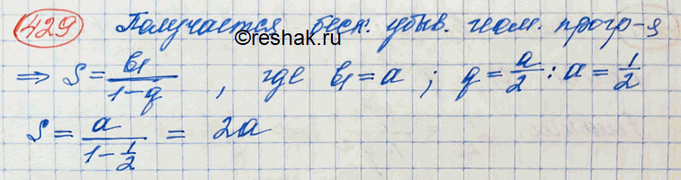 429 Получается беск. убыв. геом. прогр-я
©reshak.ru
⇒ S = b1/(1-q) , где b1 = a ; q = a/2 : a = 1/2
S = a/(1 - 1/2) = 2a